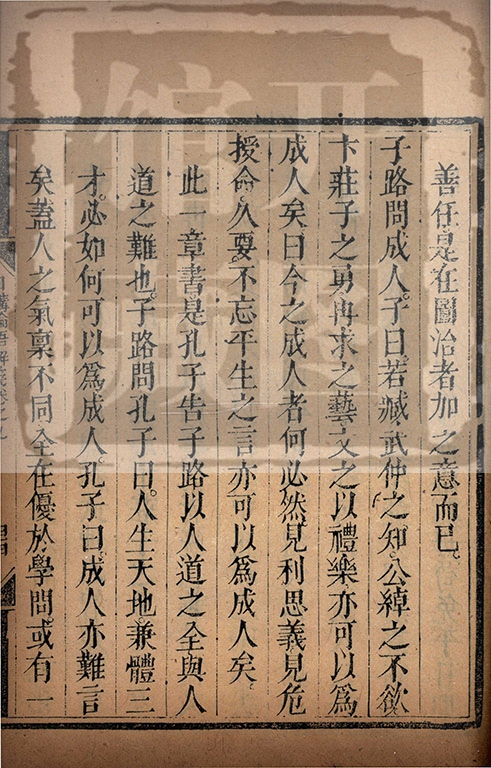 善任是在圖治者加之意而已
子路問成人子曰若臧武仲之知公綽之不欲
卞莊子之勇冉求之藝文之以禮樂亦可以爲
成人矣曰今之成人者何必然見利思義見危
授命久要不忘平生之言亦可以爲成人矣
此一章書是孔子告子路以人道之全與人
道之難也子路問孔子曰人生天地兼體三
才必如何可以爲成人孔子曰成人亦難言
矣蓋人之氣稟不同全在優於學問或有一
日講論語解義卷之九